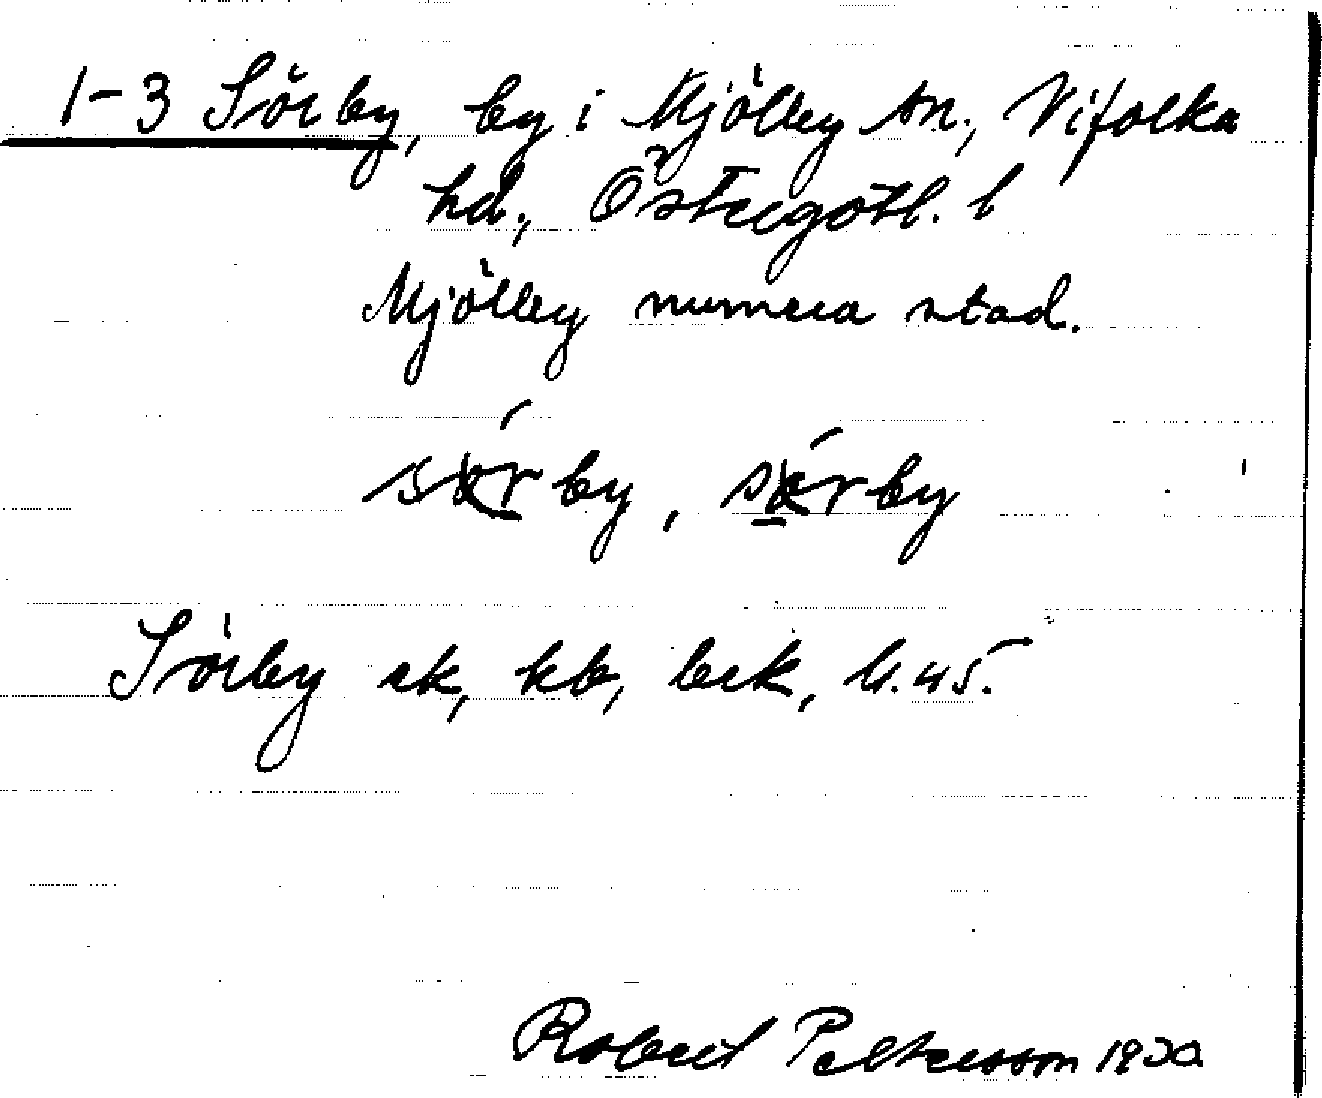 1-3 Sörby, by i Mjölby sn., Vifolka
hd., Östergötl. l
Mjölby numera stad.
Sörby sk, kb, bek,
Robert Pettersson 1920